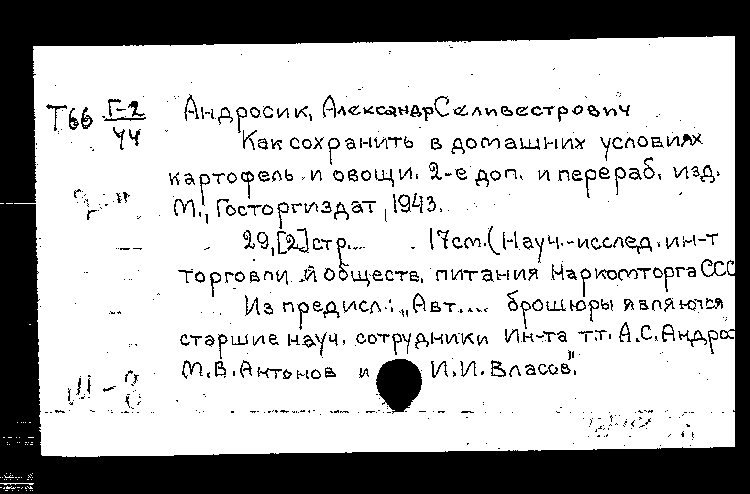 Т66 Г-2/44
Андросик, Александр Селивестрович
Как сохранить в домашних условиях
картофель и овощи. 2-е доп. и перераб. изд.
М., Госторгиздат, 1943.
29,[2] стр. 17см. (Науч.-исслед. ин-т
торговли и обществ. питания Наркомторга ССС
Из предисл.: „Авт.... брошюры являются
старшие науч. сотрудники Ин-та т.т. А.С. Андрос
М.В. Антонов и И.И. Власов".
Ш-8